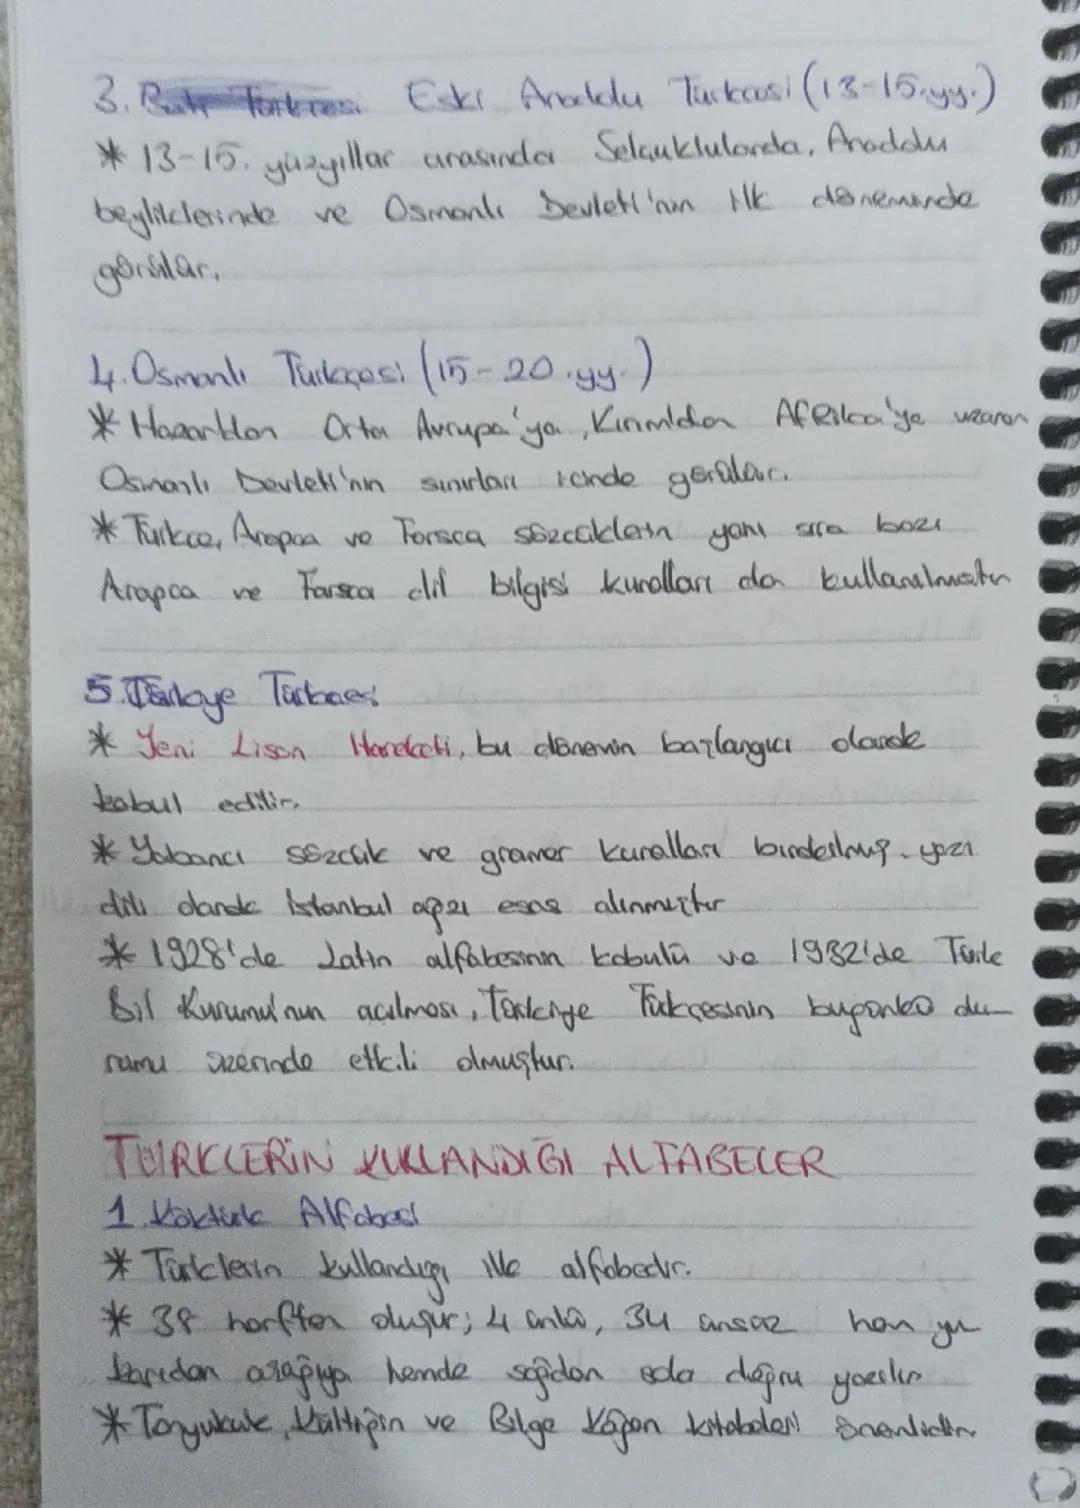 3. Eski Anadolu Türkçesi (13-15.yy.)
* 13-15. yüzyıllar arasında Selçuklularda, Anadolu
beyliklerinde ve Osmanlı Devleti'nin ilk döneminde
görülür.
4. Osmanlı Türkçesi (15-20.yy.)
* Hazar'dan Orta Avrupa'ya, Kırım'dan Afrika'ya uzanan
Osmanlı Devleti'nin sınırları içinde görülür.
* Türkçe, Arapça ve Farsça sözcüklerin yanı sıra bazı
Arapça ve Farsça dil bilgisi kuralları da kullanılmıştır
5. Türkiye Türkçesi
* Yeni Lisan Hareketi, bu dönemin başlangıcı olarak
kabul edilir.
* Yabancı sözcük ve gramer kuralları yazı
dili olarak İstanbul ağzı esas alınmıştır
* 1928'de Latin alfabesinin kabulü ve 1932'de Türk
Dil Kurumu'nun açılması, Türkiye Türkçesinin bugünkü du-
rumu üzerinde etkili olmuştur.
TÜRKLERİN KULLANDIĞI ALFABELER
1. Köktürk Alfabesi
* Türklerin kullandığı ilk alfabedir.
* 38 harften oluşur; 4 ünlü, 34 ünsüz hem yu
karıdan aşağıya hemde sağdan sola doğru yazılır
* Tonyukuk, Kültigin ve Bilge Kağan kitabeleri önemlidir.